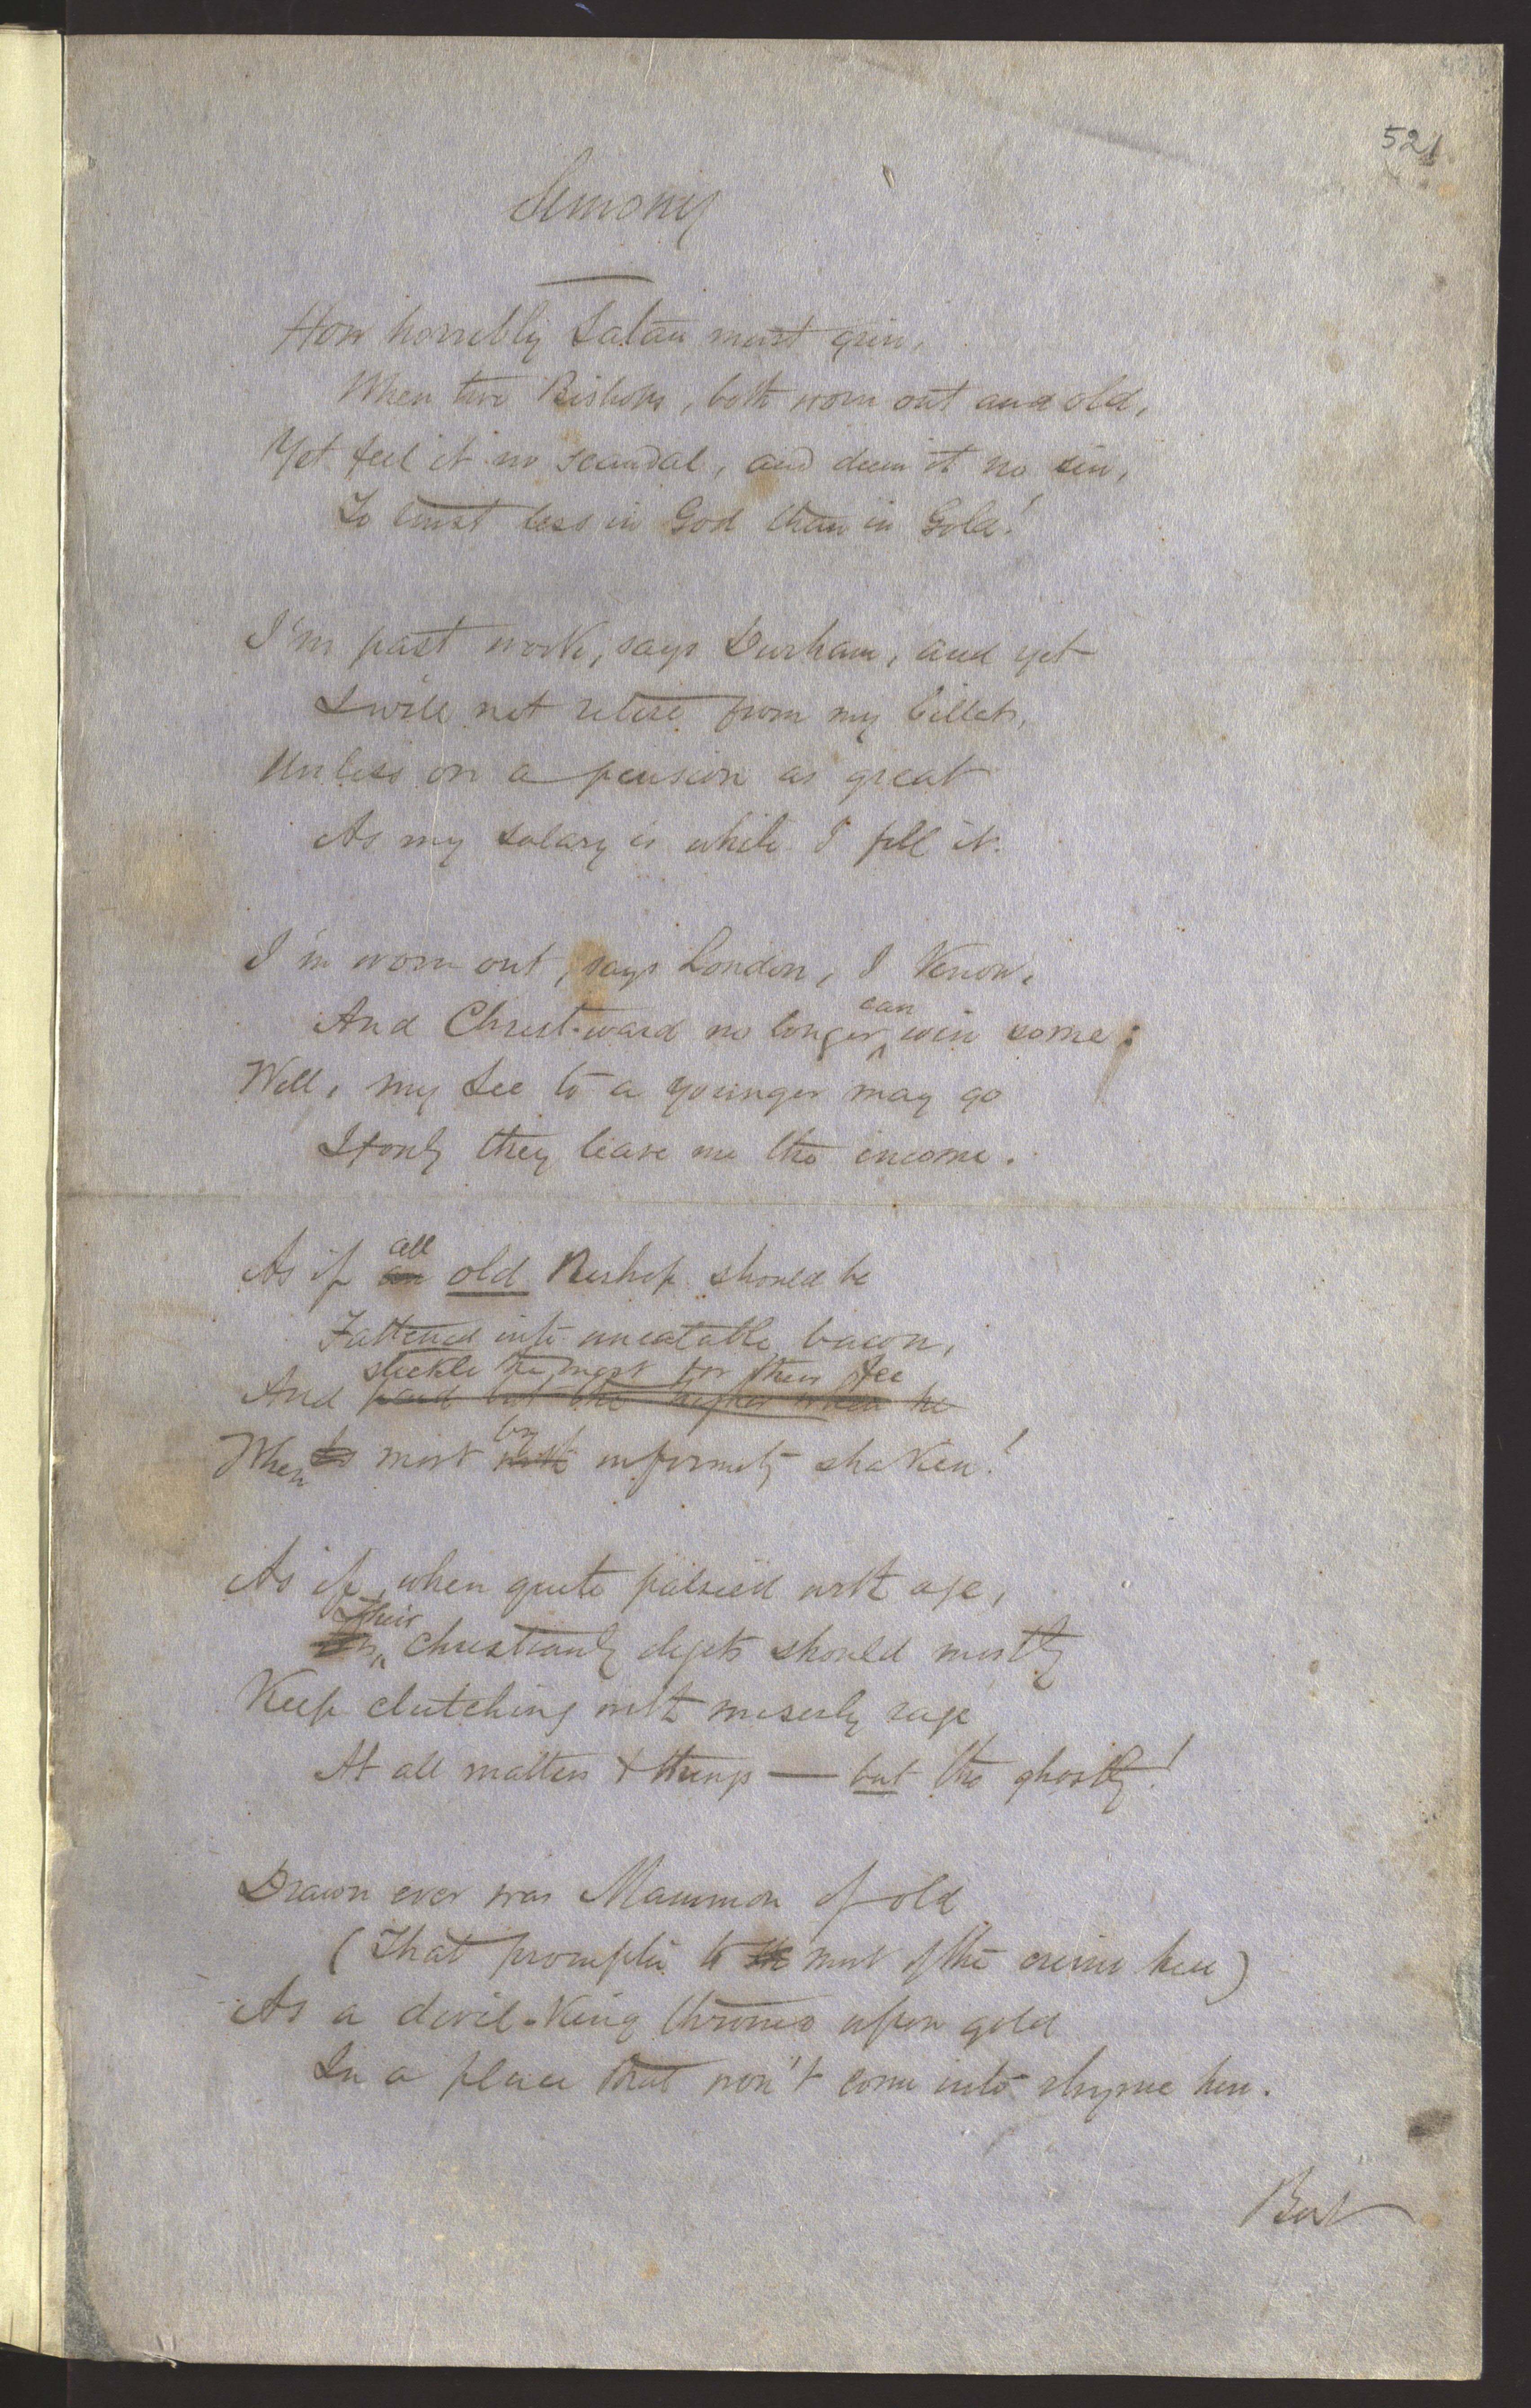 521
Simony
How horribly Satan must grin,
When two Bishops, both worn out and old,
Yet feel it no scandal, and deem it no sin,
To trust less in God than in Gold!
I'm past work, says Durham, and yet
I will not retire from my billet,
Unless on a pension as great
As my salary is while I fill it.
I'm worn out, says London, I know,
can
And Christ-ward no longer win some;
Well, my See to a younger may go
If only they leave me the income.
all
As if an old Bishop should be
Fattened into uneatable bacon,
stickle the most for their fee
And paid but the higher when he
by
When is most with infirmity shaken!
As if, when quite palsied with age,
their
Christianly digits should mostly
Keep clutching with miserly rage
At all matters & things — but the ghostly!
Drawn ever was Mammon of old
(That prompter to the most of the crime here)
As a devil-King throned upon gold
In a place that won't come into rhyme here.
But